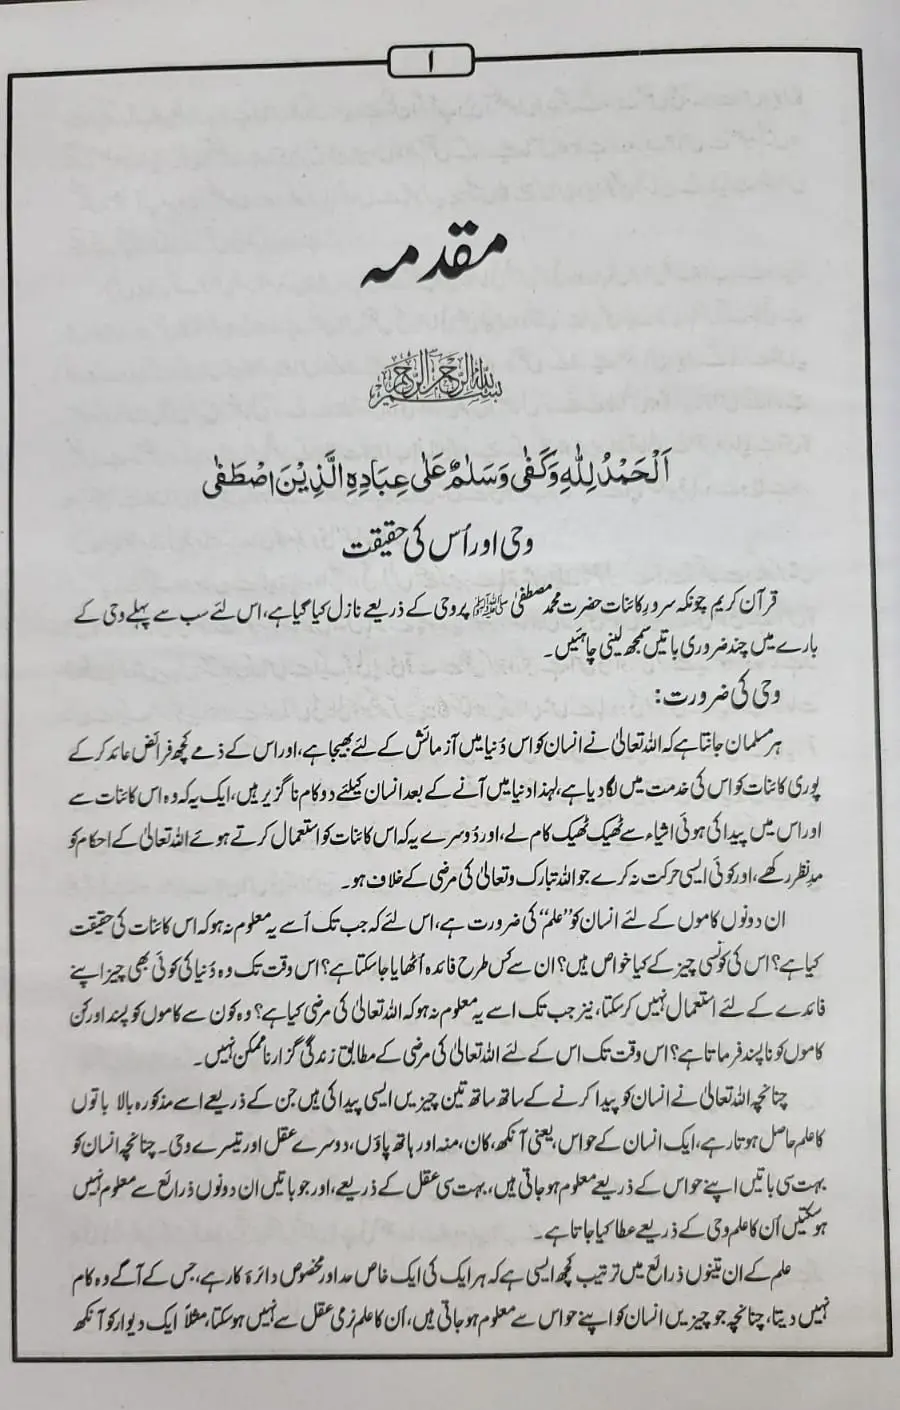 ۱
مقدمہ
بسم اللہ الرحمن الرحیم
اَلْحَمْدُ لِلّٰهِ وَكَفٰى وَسَلٰمٌ عَلٰى عِبَادِهِ الَّذِيْنَ اصْطَفٰى
وحی اور اُس کی حقیقت
قرآن کریم چونکہ سرورِ کائنات حضرت محمد مصطفیٰ ﷺ پر وحی کے ذریعے نازل کیا گیا ہے، اس لئے سب سے پہلے وحی کے
بارے میں چند ضروری باتیں سمجھ لینی چاہئیں۔
وحی کی ضرورت:
ہر مسلمان جانتا ہے کہ اللہ تعالیٰ نے انسان کو اس دُنیا میں آزمائش کے لئے بھیجا ہے، اور اس کے ذمے کچھ فرائض عائد کر کے
پوری کائنات کو اس کی خدمت میں لگا دیا ہے، لہٰذا دنیا میں آنے کے بعد انسان کیلئے دو کام ناگزیر ہیں، ایک یہ کہ وہ اس کائنات سے
اور اس میں پیدا کی ہوئی اشیاء سے ٹھیک ٹھیک کام لے، اور دُوسرے یہ کہ اس کائنات کو استعمال کرتے ہوئے اللہ تعالیٰ کے احکام کو
مدِ نظر رکھے، اور کوئی ایسی حرکت نہ کرے جو اللہ تبارک وتعالیٰ کی مرضی کے خلاف ہو۔
ان دونوں کاموں کے لئے انسان کو ”علم“ کی ضرورت ہے، اس لئے کہ جب تک اُسے یہ معلوم نہ ہو کہ اس کائنات کی حقیقت
کیا ہے؟ اس کی کونسی چیز کے کیا خواص ہیں؟ ان سے کس طرح فائدہ اُٹھایا جا سکتا ہے؟ اس وقت تک وہ دُنیا کی کوئی بھی چیز اپنے
فائدے کے لئے استعمال نہیں کر سکتا، نیز جب تک اسے یہ معلوم نہ ہو کہ اللہ تعالیٰ کی مرضی کیا ہے؟ وہ کون سے کاموں کو پسند اور کن
کاموں کو ناپسند فرماتا ہے؟ اس وقت تک اس کے لئے اللہ تعالیٰ کی مرضی کے مطابق زندگی گزارنا ممکن نہیں۔
چنانچہ اللہ تعالیٰ نے انسان کو پیدا کرنے کے ساتھ ساتھ تین چیزیں ایسی پیدا کی ہیں جن کے ذریعے اسے مذکورہ بالا باتوں
کا علم حاصل ہوتا رہے، ایک انسان کے حواس، یعنی آنکھ، کان، منہ اور ہاتھ پاؤں، دوسرے عقل اور تیسرے وحی۔ چنانچہ انسان کو
بہت سی باتیں اپنے حواس کے ذریعے معلوم ہو جاتی ہیں، بہت سی عقل کے ذریعے، اور جو باتیں ان دونوں ذرائع سے معلوم نہیں
ہو سکتیں اُن کا علم وحی کے ذریعے عطا کیا جاتا ہے۔
علم کے ان تینوں ذرائع میں ترتیب کچھ ایسی ہے کہ ہر ایک کی ایک خاص حد اور مخصوص دائرۂ کار ہے، جس کے آگے وہ کام
نہیں دیتا، چنانچہ جو چیزیں انسان کو اپنے حواس سے معلوم ہو جاتی ہیں، اُن کا علم نری عقل سے نہیں ہو سکتا، مثلاً ایک دیوار کو آنکھ